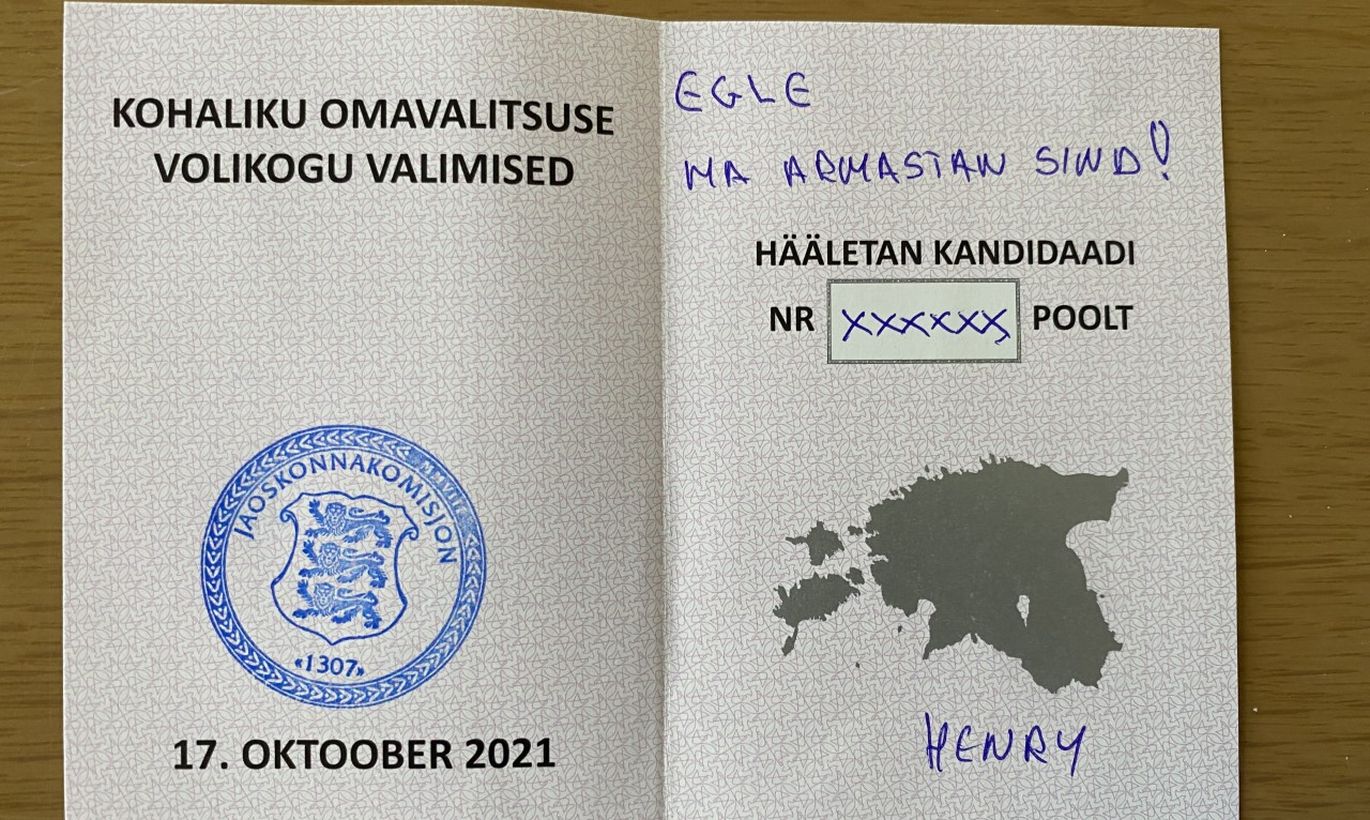 KOHALIKU OMAVALITSUSE
VOLIKOGU VALIMISED
JAOSKONNAKOMISJON
«1307»
17. OKTOOBER 2021
EGLE
MA ARMASTAN SIND!
HÄÄLETAN KANDIDAADI
NR XXXXXX POOLT
HENRY